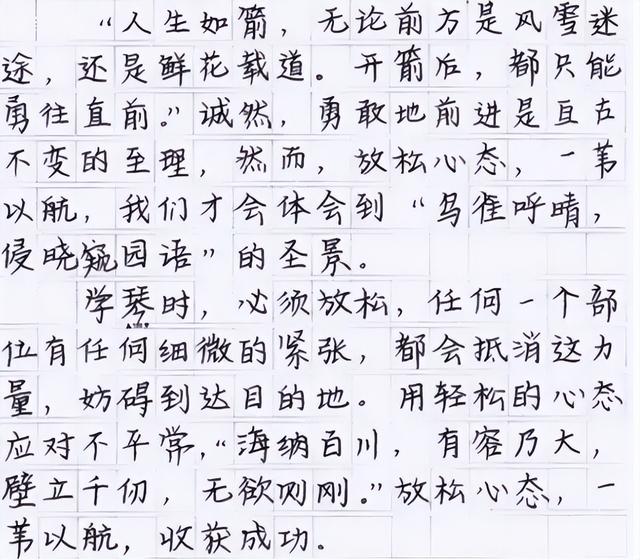 “人生如箭，无论前方是风雪迷
途，还是鲜花载道。开箭后，都只能
勇往直前。”诚然，勇敢地前进是亘古
不变的至理，然而，放松心态，一苇
以航，我们才会体会到“乌雀呼晴，
侵晓窥园语”的圣景。
学琴时，必须放松，任何一个部
位有任何细微的紧张，都会抵消这力
量，妨碍到达目的地。用轻松的心态
应对不平常，“海纳百川，有容乃大，
壁立千仞，无欲则刚。”放松心态，一
苇以航，收获成功．